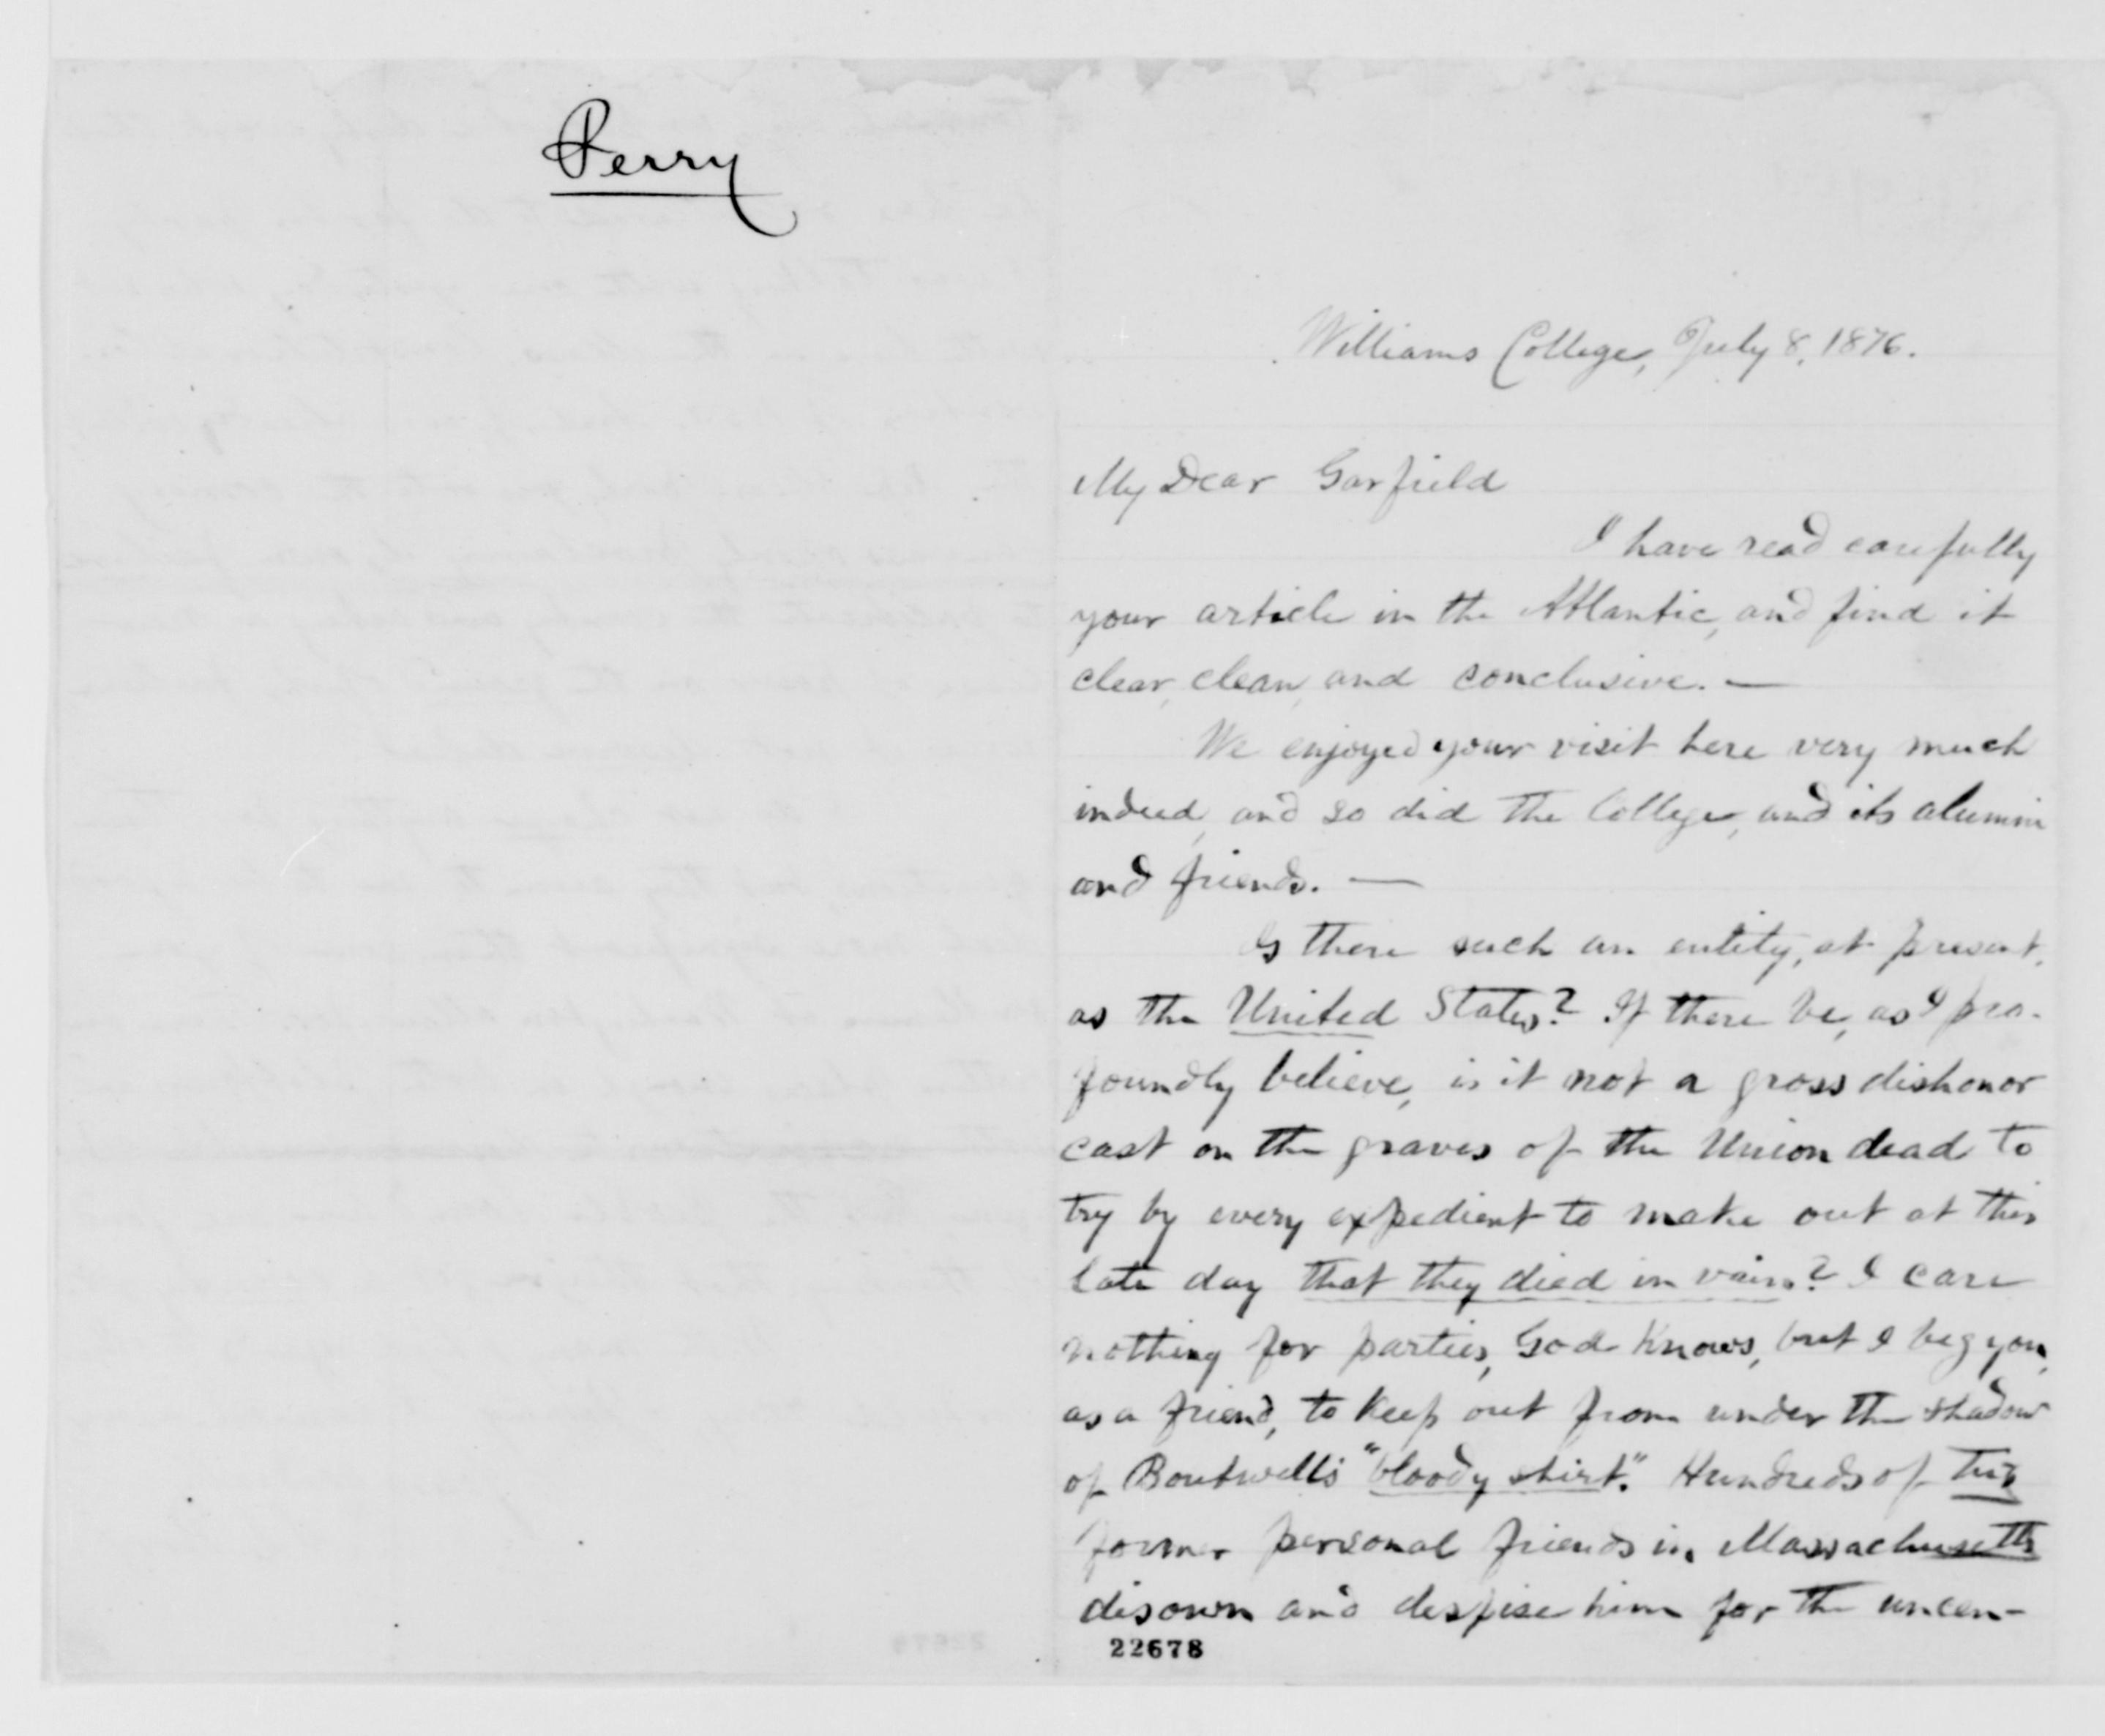 Perry
Williams College, July 8, 1876.
My Dear Garfield
I have read carefully
your article in the Atlantic, and find it
clear, clean, and conclusive. —
We enjoyed your visit here very much
indeed, and so did the College, and its alumni
and friends. —
Is there such an entity, at present,
as the United States? If there be, as I pro-
foundly believe, is it not a gross dishonor
cast on the graves of the Union dead to
try by every expedient to make out at this
late day that they died in vain? I care
nothing for parties, God knows, but I beg you,
as a friend, to keep out from under the shadow
of Boutwell's "bloody shirt". Hundreds of his
former personal friends in Massachusetts
disown and despise him for the uncen-
22678